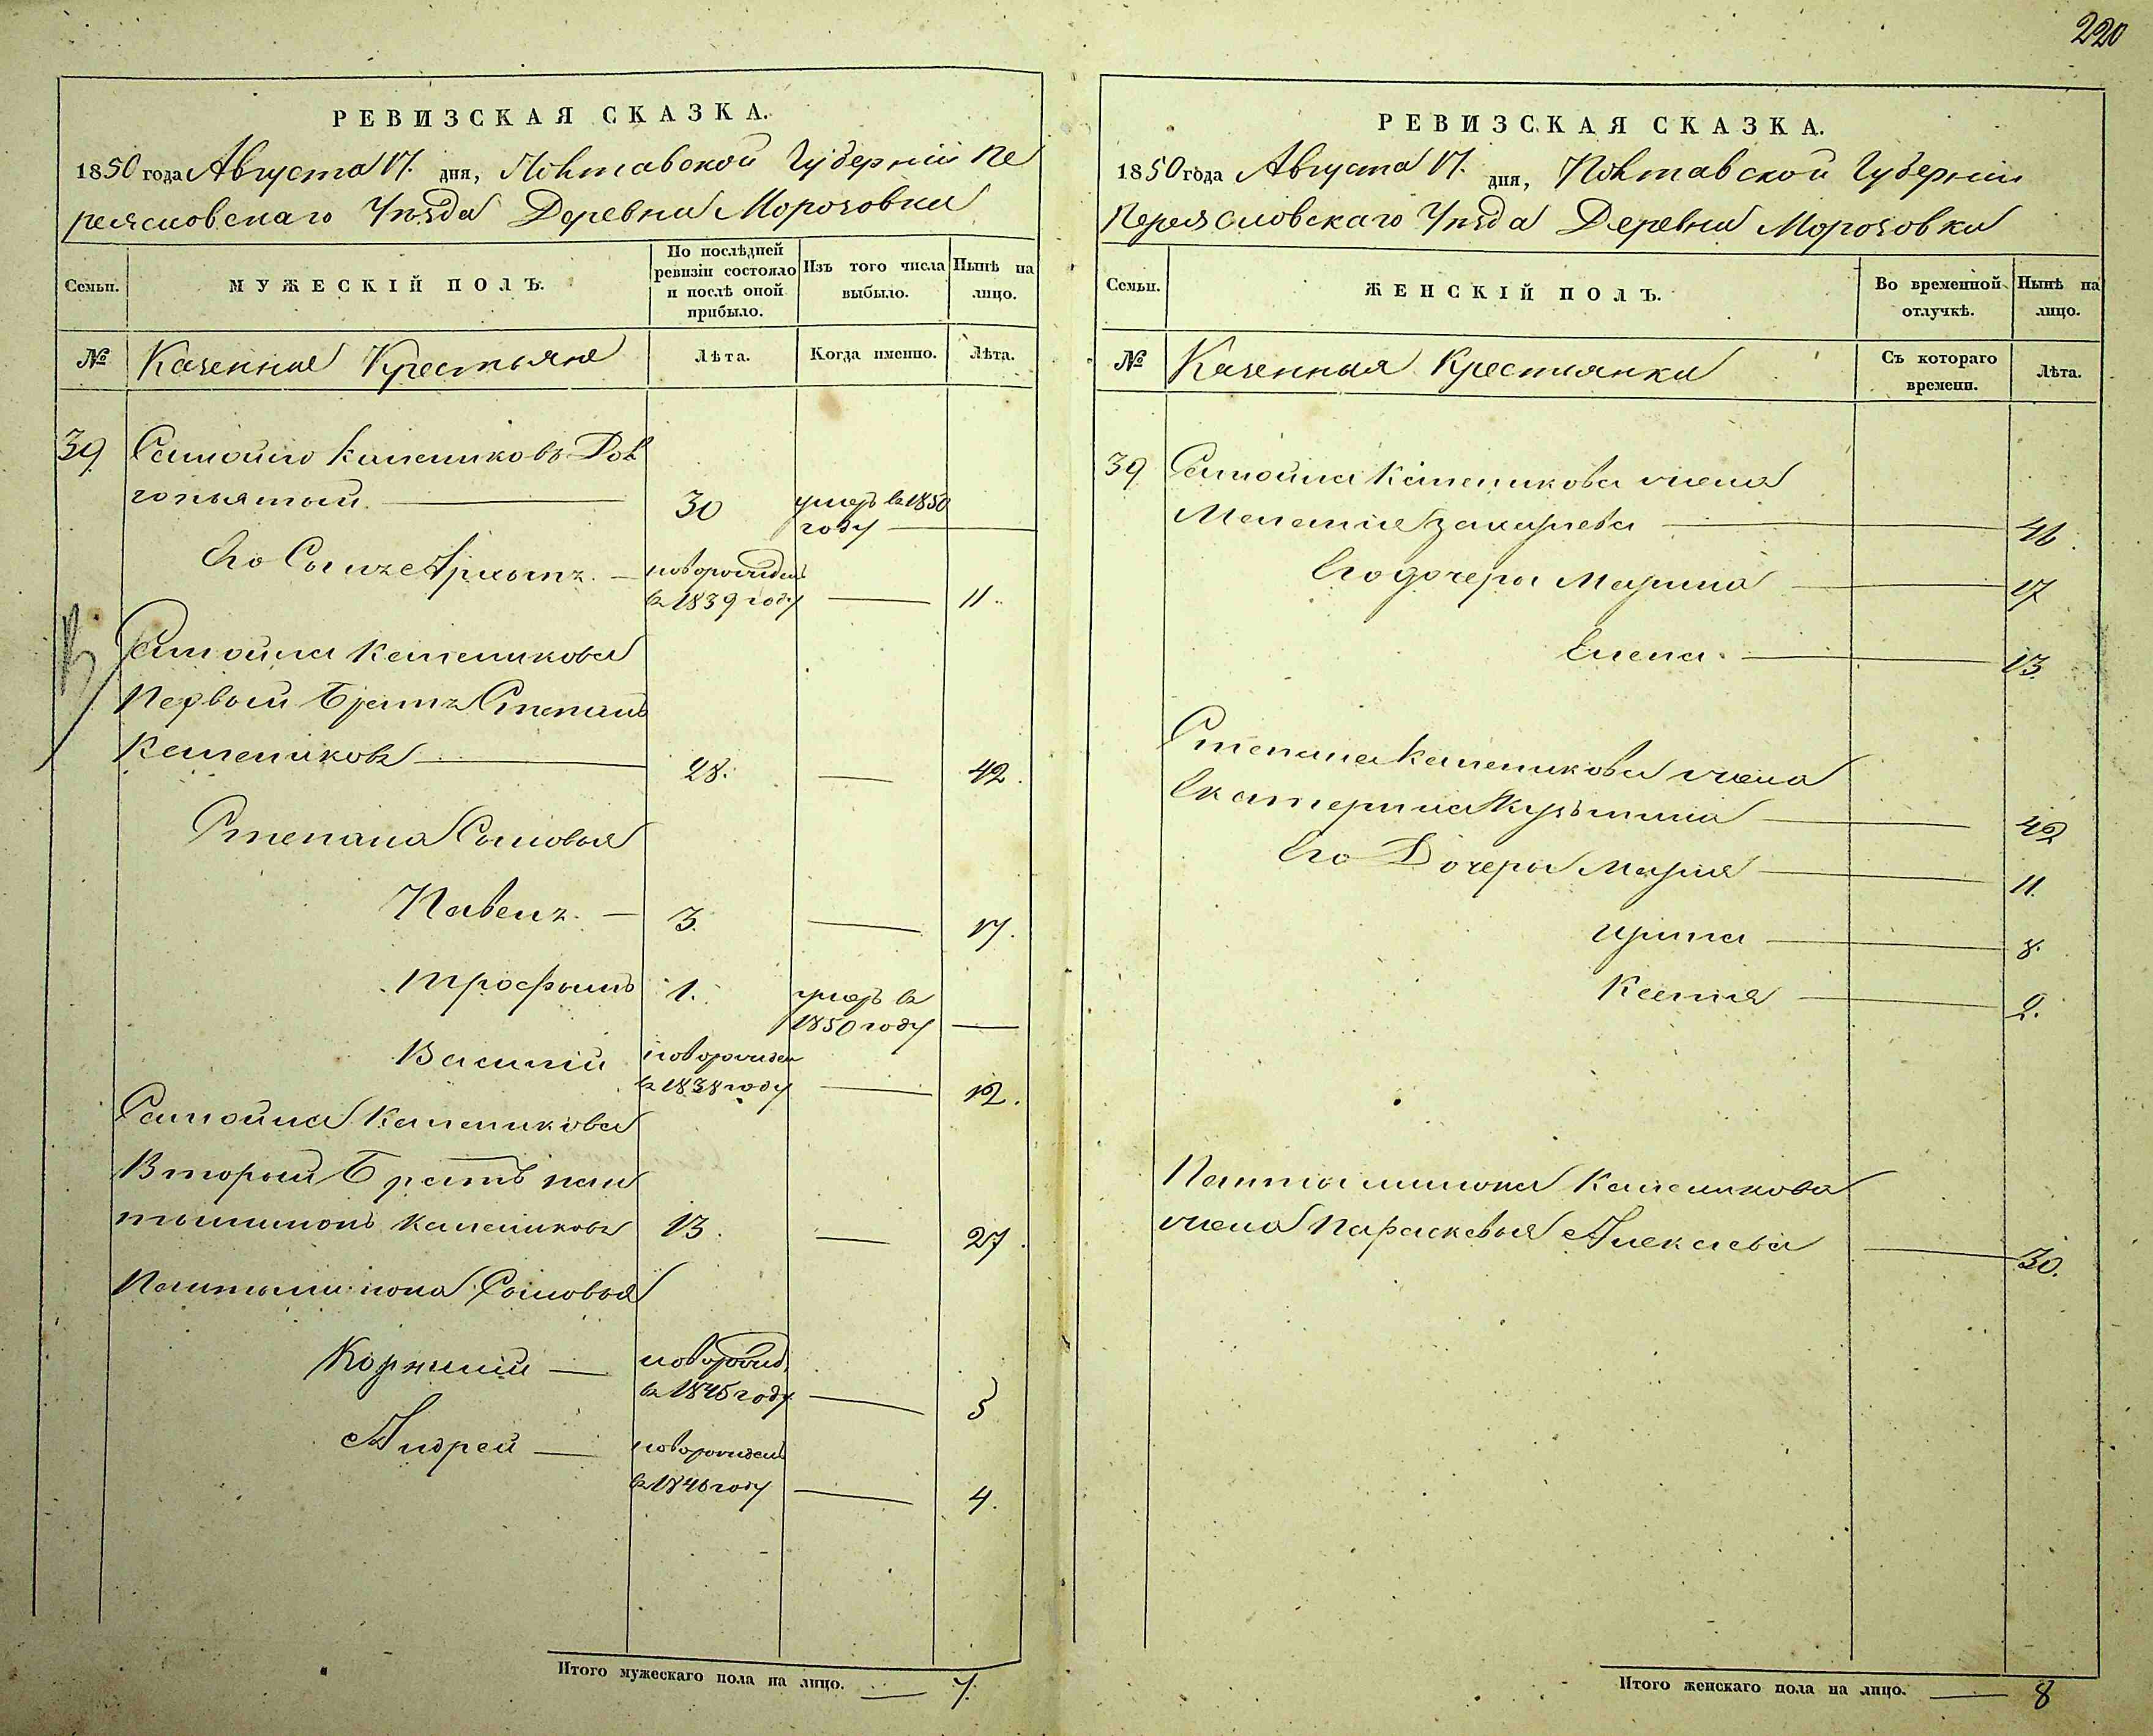 220
РЕВИЗСКАЯ СКАЗКА.
1850 года Августа 17. дня, Полтавской Губерніи Пе
реясловскаго Уѣзда Деревни Морозовки
Семьи.
МУЖЕСКІЙ ПОЛЪ.
По послѣдней ревизіи состояло и послѣ оной прибыло.
Изъ того числа выбыло.
Нынѣ на лицо.
№
Казенные Крестьяне
Лѣта.
Когда именно.
Лѣта.
39 Самойло Калениковъ Дол
гопятый 30 умеръ въ 1850
году
Его Сынъ новорожденъ
въ 1839 году 11.
Самойла Каленикова
Первый Братъ Степанъ
Калениковъ 28. 42.
Степана Сыновья
Павелъ. 3. 17.
Трофимъ 1. умеръ въ
1850 году
Василій новорожден
въ 1838 году 12.
Самойла Каленикова
Вторый Братъ пан
тылимонъ Калениковъ 13. 27.
Пантылимона Сыновья
Корнилій новорожд.
въ 1845 году 5
Андрей новорожденъ
въ 1846 году 4.
Итого мужескаго пола на лицо. 7.
РЕВИЗСКАЯ СКАЗКА.
1850 года Августа 17. дня, Полтавской Губерніи
Переясловскаго Уѣзда Деревни Морозовки
Семьи.
ЖЕНСКІЙ ПОЛЪ.
Во временной отлучкѣ.
Нынѣ на лицо.
№
Казенныя Крестьянки
Съ котораго времени.
Лѣта.
39 Самойла Каленикова жена
Меланія Захарьева 46.
Его дочеры Марина 17
Елена. 13.
Степана Каленикова жена
Екатерина Кузьмина 42
Его Дочеры Марія 11.
Ирина 8.
Ксенія 2.
Пантылимона Каленикова
жена Параскевья Алексева 30.
Итого женскаго пола на лицо. 8